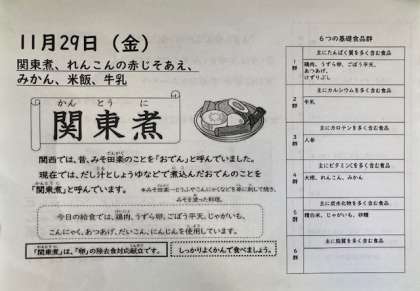 11月29日（金）
関東煮、れんこんの赤じそあえ、
みかん、米飯、牛乳
かん とう に
関東煮
関西では、昔、みそ田楽のことを「おでん」と呼んでいました。
現在では、だし汁としょうゆなどで煮込んだおでんのことを
「関東煮」と呼んでいます。
今日の給食では、鶏肉、うずら卵、ごぼう平天、じゃがいも、
こんにゃく、あつあげ、だいこん、にんじんを使用しています。
「関東煮」は、「卵」の除去食対応献立です。
しっかりよくかんで食べましょう。
6つの基礎食品群
1群
主にたんぱく質を多く含む食品
鶏肉、うずら卵、ごぼう平天、
あつあげ、
けずりぶし
2群
主にカルシウムを多く含む食品
牛乳
3群
主にカロテンを多く含む食品
人参
4群
主にビタミンCを多く含む食品
大根、れんこん、みかん
5群
主に炭水化物を多く含む食品
精白米、じゃがいも、砂糖
6群
主に脂質を多く含む食品